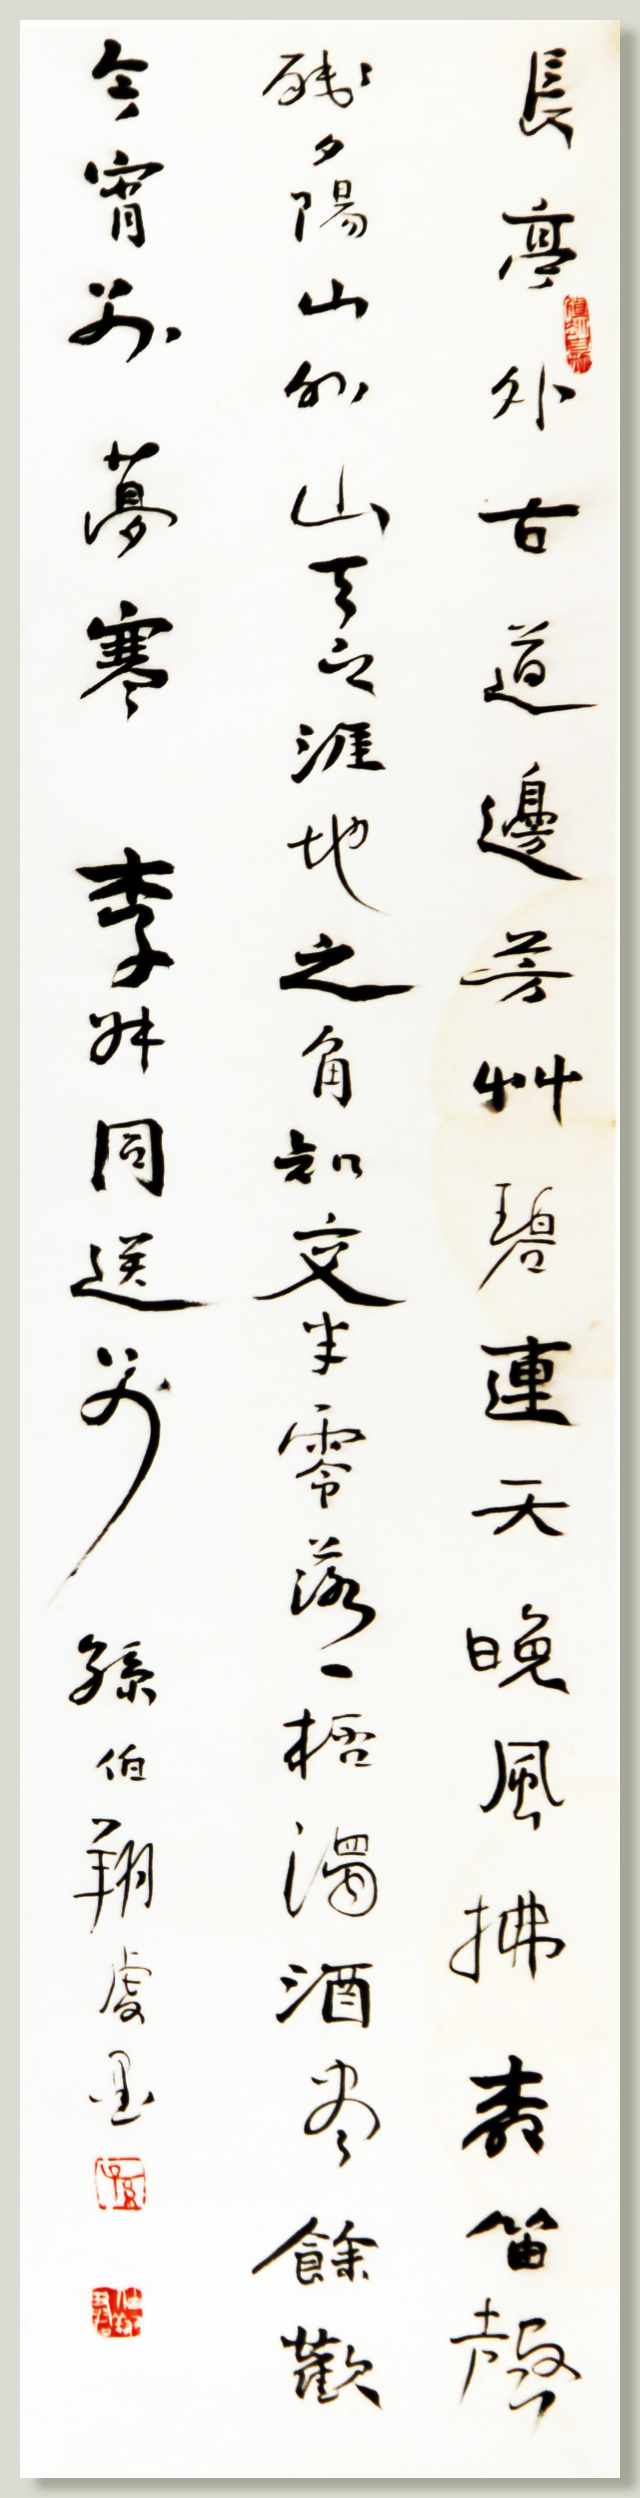 長亭外古道邊芳艸碧連天晚風拂柳笛聲
殘夕陽山外山天之涯地之角知交半零落一桮濁酒盡餘歡
今宵別夢寒 李叔同送別 孫伯翔虔墨